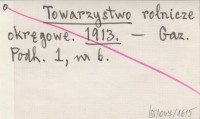 a
Towarzystwo rolnicze
okręgowe. 1913. — Gaz.
Podh. 1, nr 6.